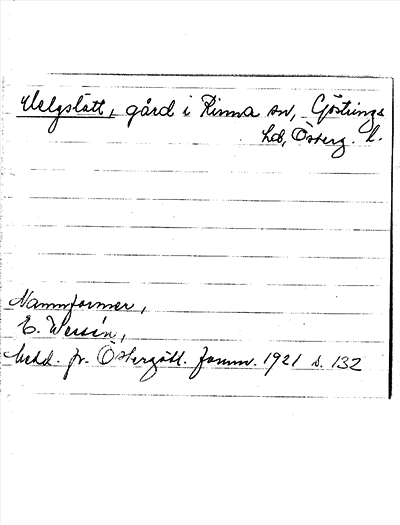 Uelgslätt, gård i Rinna sn, Göstrings
hd, Österg. l.
Namnformer,
E. Wessén,
Medd. fr. Östergötl. fornm. 1921 s. 132